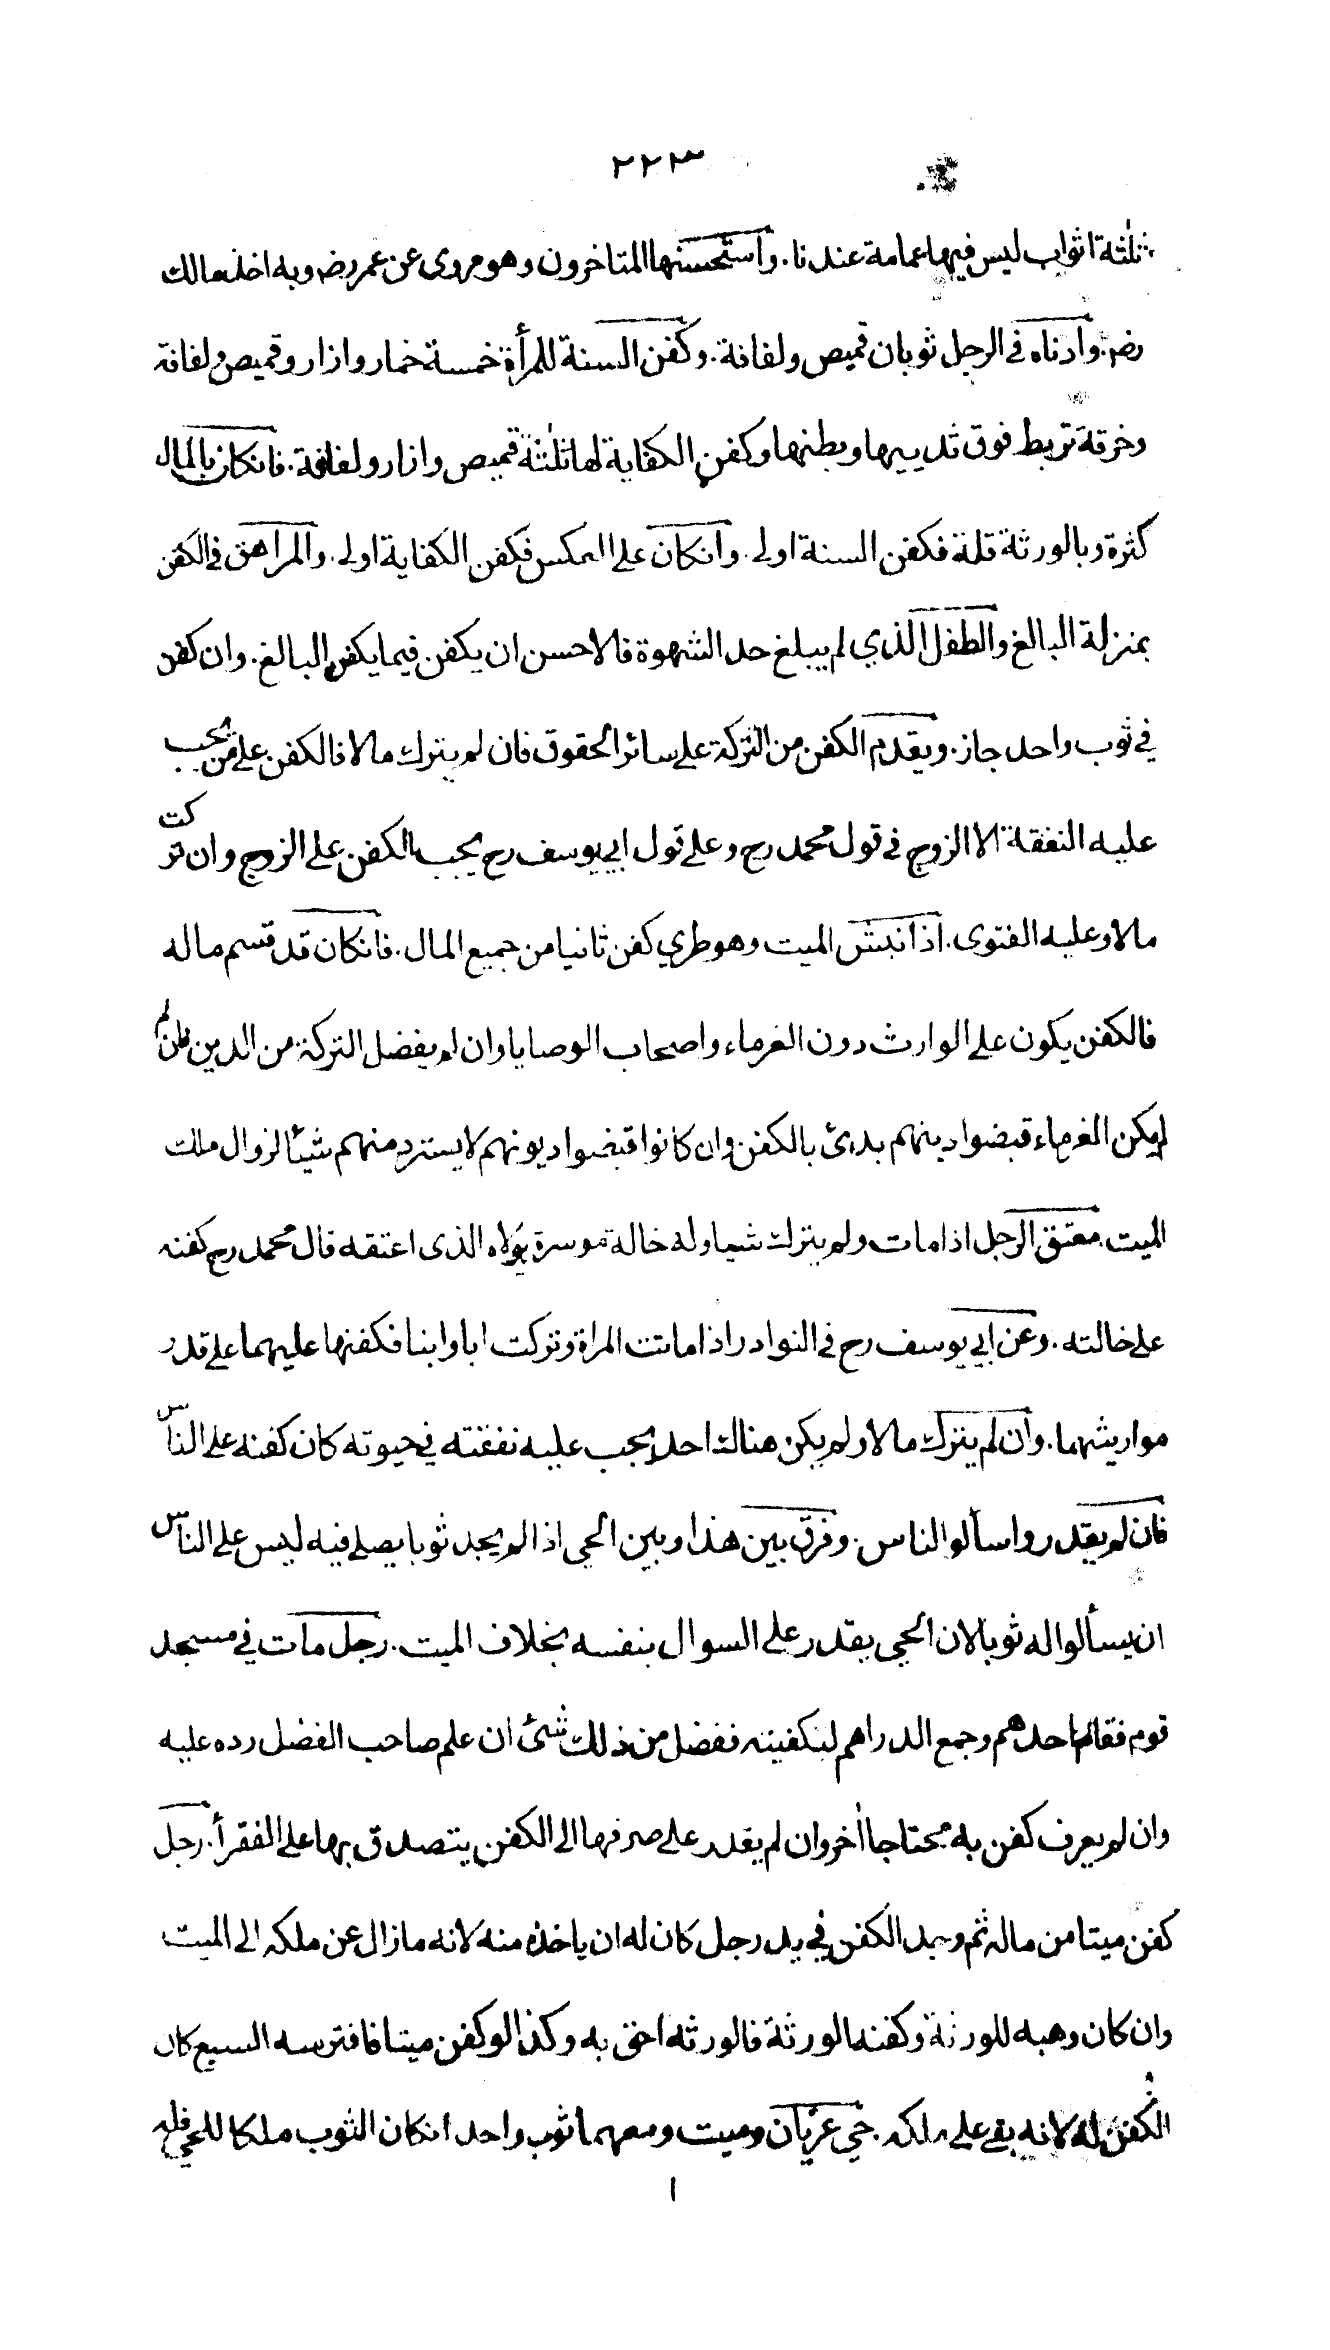 ٢٢٣
ثلثة اثواب ليس فيها عمامة عندنا. واستحسنها المتاخرون وهو مروى عن عمر رضہ وبه اخذ مالك
رضہ. وادناه فى الرجل ثوبان قميص ولفافة. وكفن السنة للمرأة خمسة خمار وازار وقميص ولفافة
وخرقة تربط فوق ثدييها وبطنها وكفن الكفاية لها ثلثة قميص وازار ولفافة. فانكان بالمال
كثرة وبالورثة قلة فكفن السنة اولى. وانكان على العكس فكفن الكفاية اولى. والمراهق فى الكفن
بمنزلة البالغ والطفل الذي لم يبلغ حد الشهوة فالاحسن ان يكفن فيما يكفن البالغ. وان كفن
في ثوب واحد جاز. ويقدم الكفن من التركة على سائر الحقوق فان لم يترك مالا فالكفن على من يجب
عليه النفقة الا الزوج فى قول محمد رح وعلى قول ابي يوسف رح يجب الكفن على الزوج وان تركت
مالا وعليه الفتوى. اذا نبش الميت وهو طري كفن ثانيا من جميع المال. فانكان قد قسم ماله
فالكفن يكون على الوارث دون الغرماء واصحاب الوصايا وان لم يفضل التركة من الدين فان لم
يكن الغرماء قبضوا دينهم بدئ بالكفن وان كانوا قبضوا ديونهم لا يسترد منهم شيئا لزوال ملك
الميت. معتق الرجل اذا مات ولم يترك شيا وله خالة موسرة ومولاه الذى اعتقه قال محمد رح كفنه
على خالته. وعن ابي يوسف رح فى النوادر اذا ماتت المراة وتركت ابا وابنا فكفنها عليهما على قدر
مواريثهما. وان لم يترك مالا ولم يكن هناك احد يجب عليه نفقته في حيوته كان كفنه على الناس
فان لم يقدروا سألوا الناس. وفرق بين هذا وبين الحي اذا لم يجد ثوبا يصلى فيه ليس على الناس
ان يسألوا له ثوبا لان الحي يقدر على السوال بنفسه بخلاف الميت. رجل مات في مسجد
قوم فقام احدهم وجمع الدراهم ليكفينه ففضل من ذلك شئ ان علم صاحب الفضل رده عليه
وان لم يعرف كفن به محتاجا اخر وان لم يقدر على صرفها الى الكفن يتصدق بها على الفقرأ. رجل
كفن ميتا من ماله ثم وجد الكفن في يد رجل كان له ان ياخذه منه لانه مازال عن ملكه الى الميت
وان كان وهبه للورثة وكفنه الورثة فالورثه احق به وكذا لو كفن ميتا فافترسه السبع كان
الكفن له لانه بقى على ملكه. حي عريان وميت ومعهما ثوب واحد انكان الثوب ملكا للحي فله
ا